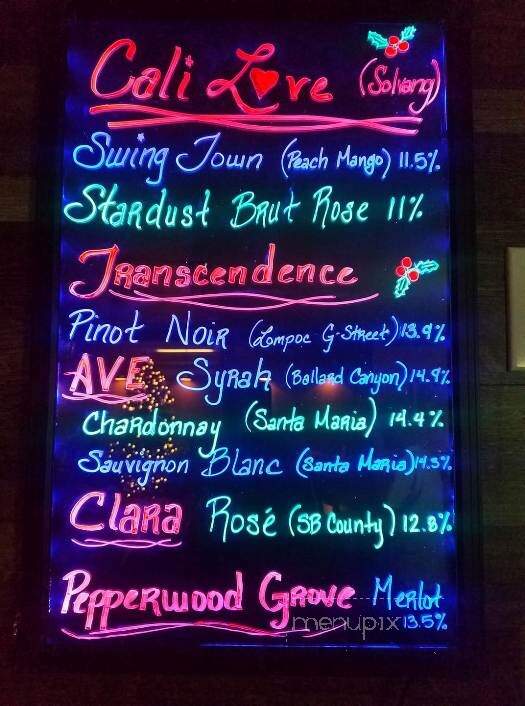 Cali Love (Solvang)
Swing Town (Peach Mango) 11.5%
Stardust Brut Rose 11%
Transcendence
Pinot Noir (Lompoc G-Street) 13.9%
AVE Syrah (Ballard Canyon) 14.9%
Chardonnay (Santa Maria) 14.4%
Sauvignon Blanc (Santa Maria) 14.3%
Clara Rosé (SB County) 12.8%
Pepperwood Grove Merlot
menupix 13.5%